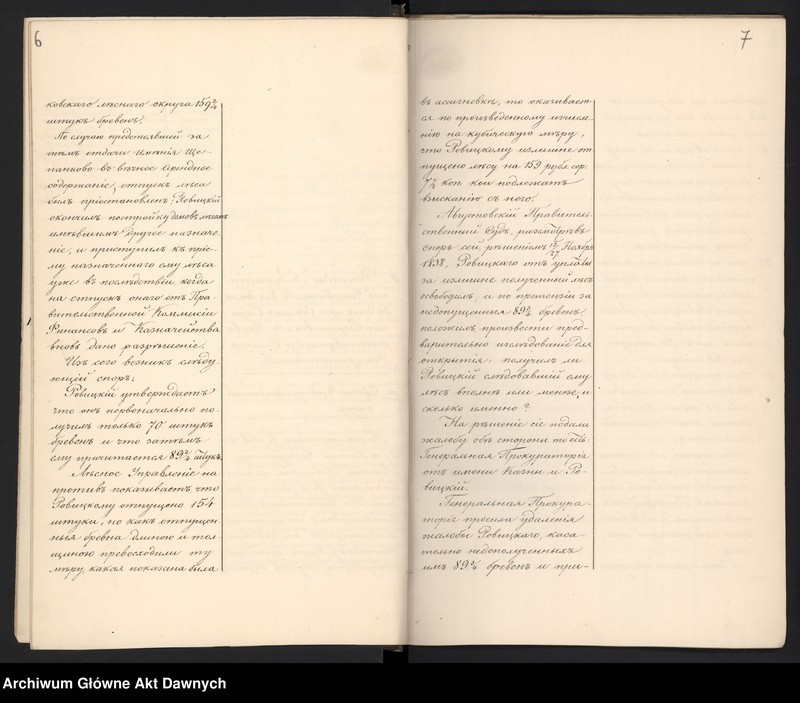 6
ковскаго лѣснаго округа 159 3/4
штукъ бревенъ.
По случаю предстоявшей за
тѣмъ отдачи имѣнія Ще-
панково въ вѣчное арендное
содержаніе, отпускъ лѣса
былъ пріостановленъ; Ровицкій
окончилъ постройку домовъ лѣсомъ
имѣвшимъ другое назначе-
ніе, и приступилъ къ пріе-
му назначеннаго ему лѣса
уже въ послѣдствіи, когда
на отпускъ онаго отъ Пра-
вительственной Коммисіи
Финансовъ и Казначейства
вновь дано разрѣшеніе.
Изъ сего возникъ слѣду-
ющій споръ:
Ровицкій утверждаетъ
что онъ первоначально по-
лучилъ только 70 штукъ
бревенъ и что затѣмъ
ему причитается 89 3/4 штукъ.
Лѣсное Управленіе на
противъ показываетъ что
Ровицкому отпущено 154
штуки, но какъ отпущен
ныя бревна длиною и тол-
щиною превосходили ту
мѣру какая показана была
7
въ ассигновкѣ, то оказывает-
ся по произведенному исчисле-
нію на кубическую мѣру,
что Ровицкому излишне от
пущено лѣсу на 159 рубл. сер.
7 1/2 коп. кои подлежатъ
взысканію съ него.
Августовскій Правитель-
ственный Судъ, разсмотрѣвъ
споръ сей, рѣшеніемъ 15/27 Ноября
1838, Ровицкаго отъ уплаты
за излишне полученный лѣсъ
освободилъ, а по претензіи за
недопущенныя 89 3/4 бревенъ
положилъ произвести пред-
варительно изслѣдованіе для
открытія: получилъ ли
Ровицкій слѣдовавшій ему
лѣсъ вполнѣ или менѣе, и
сколько именно?
На рѣшеніе сіе подали
жалобу обѣ стороны то есть:
Генеральная Прокураторія
отъ имени Казны и Ро-
вицкій.
Генеральная Прокура-
торія просила удаленія
жалобы Ровицкаго, каса-
тельно недополученныхъ
имъ 89 3/4 бревенъ и при-
Archiwum Główne Akt Dawnych